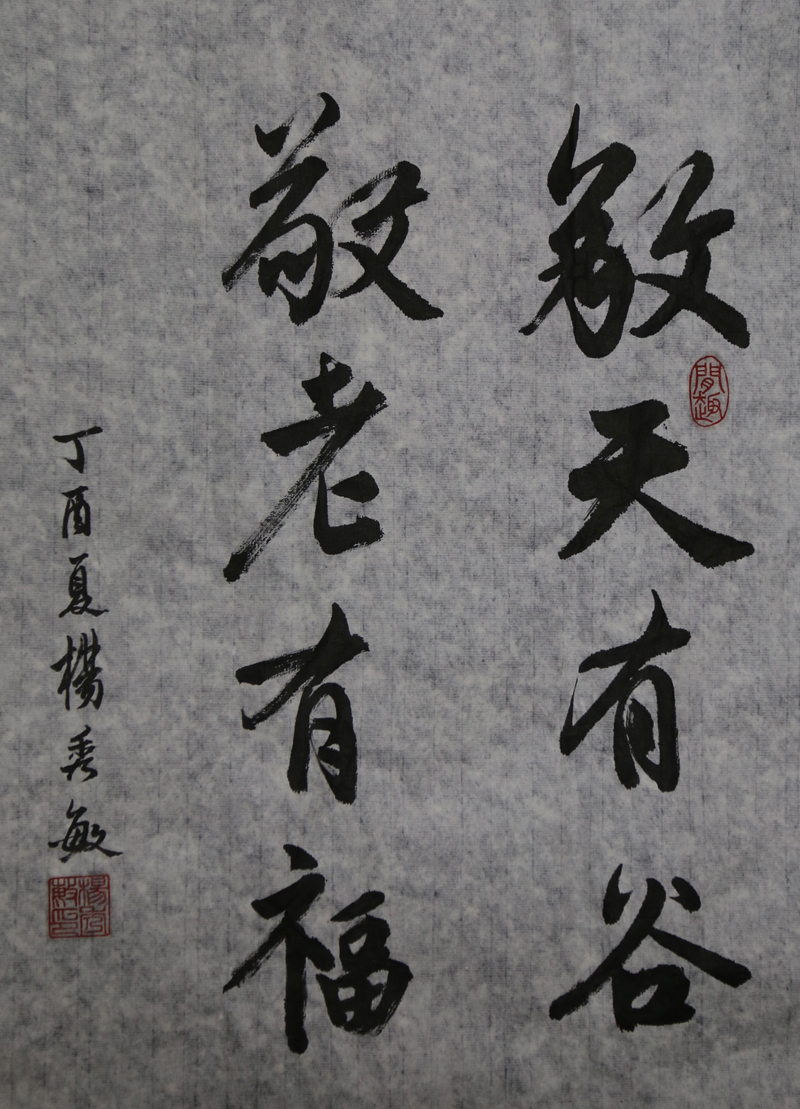 敬天有谷
閒趣
敬老有福
丁酉夏楊秀敏
楊秀敏印